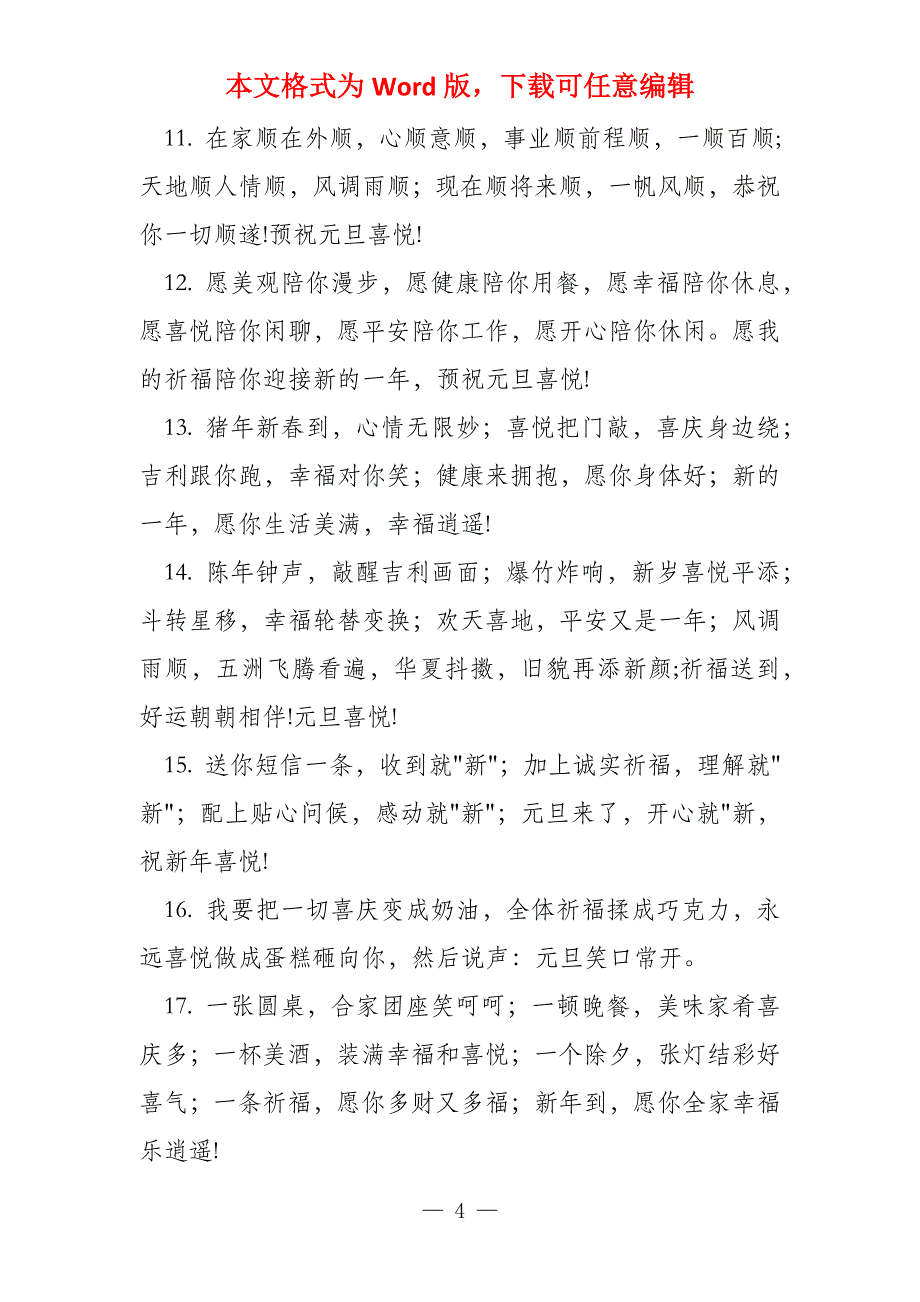 本文格式为 Word 版，下载可任意编辑
11. 在家顺在外顺，心顺意顺，事业顺前程顺，一顺百顺;
天地顺人情顺，风调雨顺；现在顺将来顺，一帆风顺，恭祝
你一切顺遂!预祝元旦喜悦!
12. 愿美观陪你漫步，愿健康陪你用餐，愿幸福陪你休息，
愿喜悦陪你闲聊，愿平安陪你工作，愿开心陪你休闲。愿我
的祈福陪你迎接新的一年，预祝元旦喜悦!
13. 猪年新春到，心情无限妙；喜悦把门敲，喜庆身边绕；
吉利跟你跑，幸福对你笑；健康来拥抱，愿你身体好；新的
一年，愿你生活美满，幸福逍遥!
14. 陈年钟声，敲醒吉利画面；爆竹炸响，新岁喜悦平添；
斗转星移，幸福轮替变换；欢天喜地，平安又是一年；风调
雨顺，五洲飞腾看遍，华夏抖擞，旧貌再添新颜;祈福送到，
好运朝朝相伴!元旦喜悦!
15. 送你短信一条，收到就"新"；加上诚实祈福，理解就"
新"；配上贴心问候，感动就"新"；元旦来了，开心就"新，
祝新年喜悦!
16. 我要把一切喜庆变成奶油，全体祈福揉成巧克力，永
远喜悦做成蛋糕砸向你，然后说声：元旦笑口常开。
17. 一张圆桌，合家团座笑呵呵；一顿晚餐，美味家肴喜
庆多；一杯美酒，装满幸福和喜悦；一个除夕，张灯结彩好
喜气；一条祈福，愿你多财又多福；新年到，愿你全家幸福
乐逍遥!
— 4 —